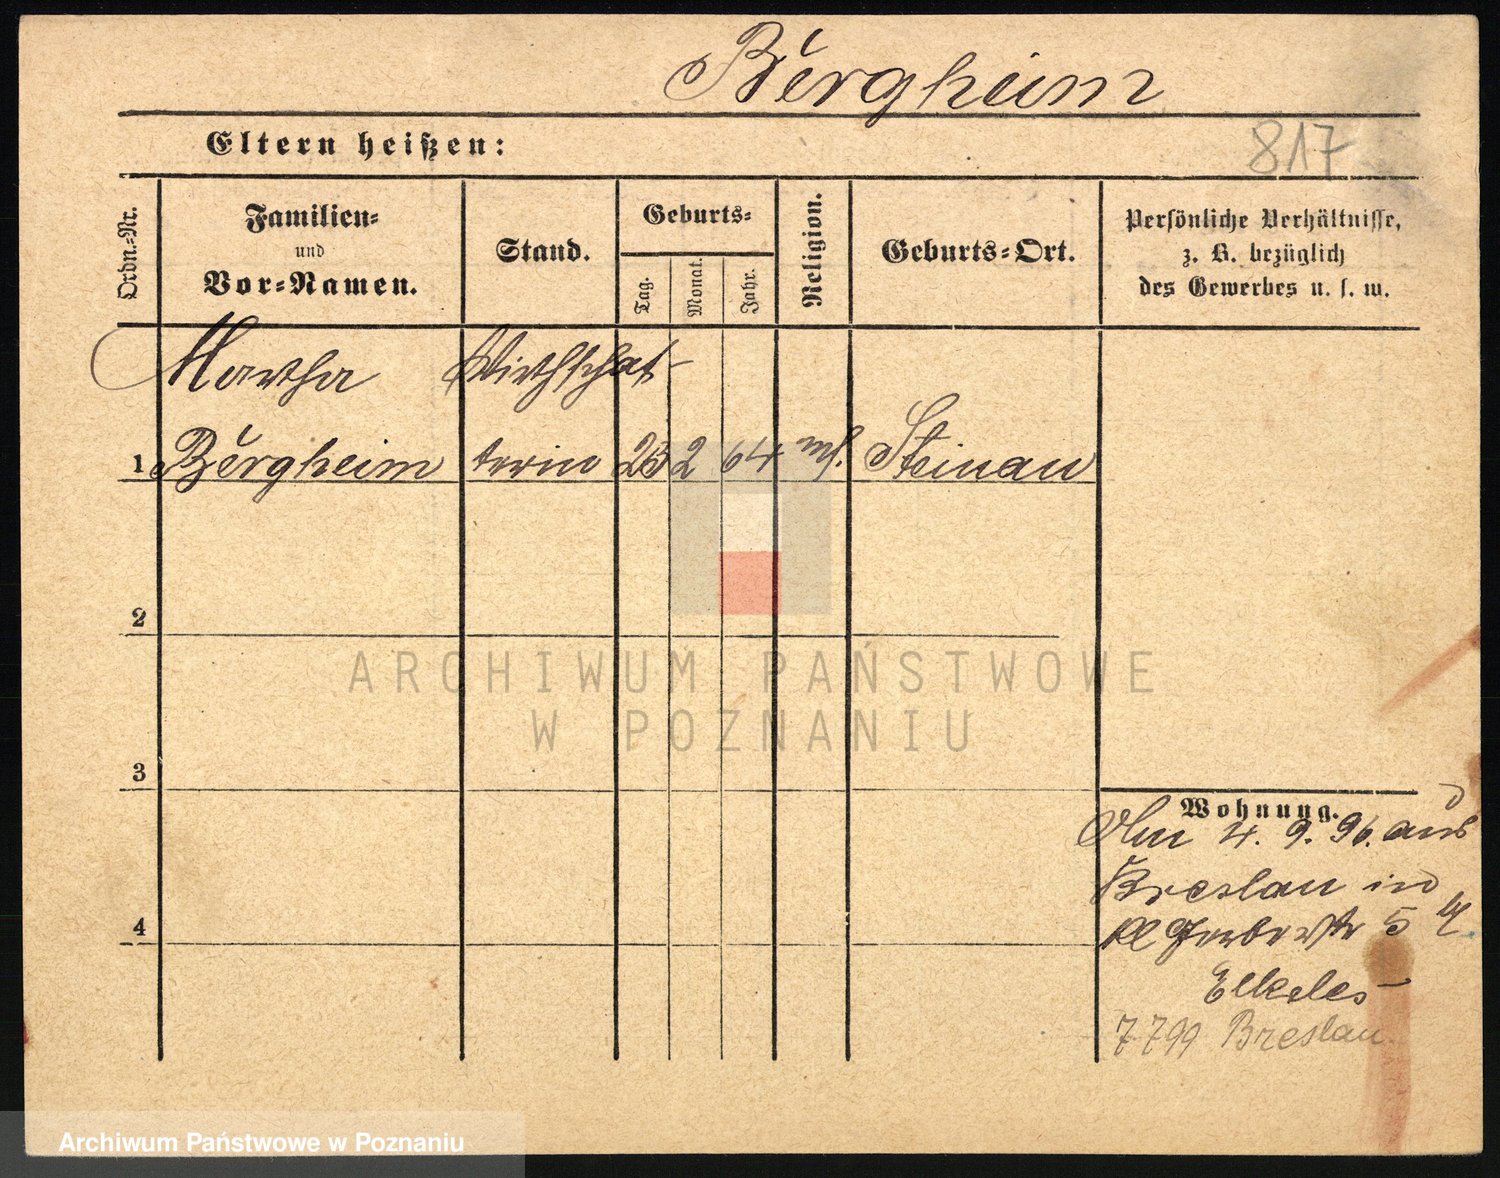 Bergheim
Eltern heißen:
817
Ordn.-Nr.
Familien-
und
Vor-Namen.
Stand.
Geburts-
Tag.
Monat.
Jahr.
Religion.
Geburts-Ort.
Persönliche Verhältnisse,
z. B. bezüglich
des Gewerbes u. s. w.
Martha Wirthschaf-
1 Bergheim terin 2 64 Steinau
2
ARCHIWUM PAŃSTWOWE
W POZNANIU
3
Wohnung.
4. 9. 96. aus
Breslau in
Gerberstr 5
4
Elkeles
7799 Breslau
Archiwum Państwowe w Poznaniu